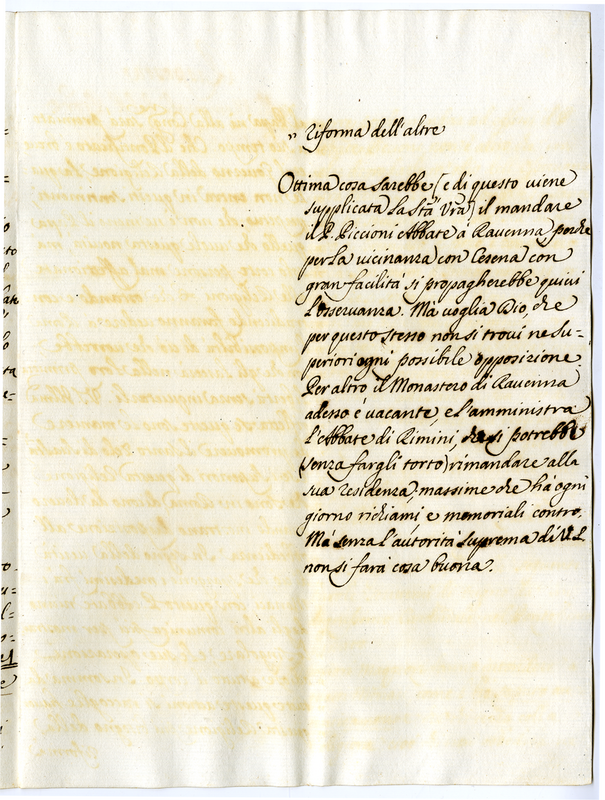 „ riforma dell'altre
Ottima cosa sarebbe (e di questo viene
supplicata la Stà Vrà) il mandare
il P. Piccioni Abbate à Ravenna, perche
per la vicinanza con Cesena con
gran facilità si propagherebbe quivi
l'osservanza. Mà voglia Dio, che
per questo stesso non si trovi ne Su-
periori ogni possibile opposizione.
Per altro il Monastero di Ravenna
adesso è vacante, e l'amministra
l'Abbate di Rimini, che si potrebbe
(senza fargli torto) rimandare alla
sua residenza, massime che hà ogni
giorno richiami e memoriali contro.
Mà senza l'autorità suprema di V. S.
non si farà cosa buona.